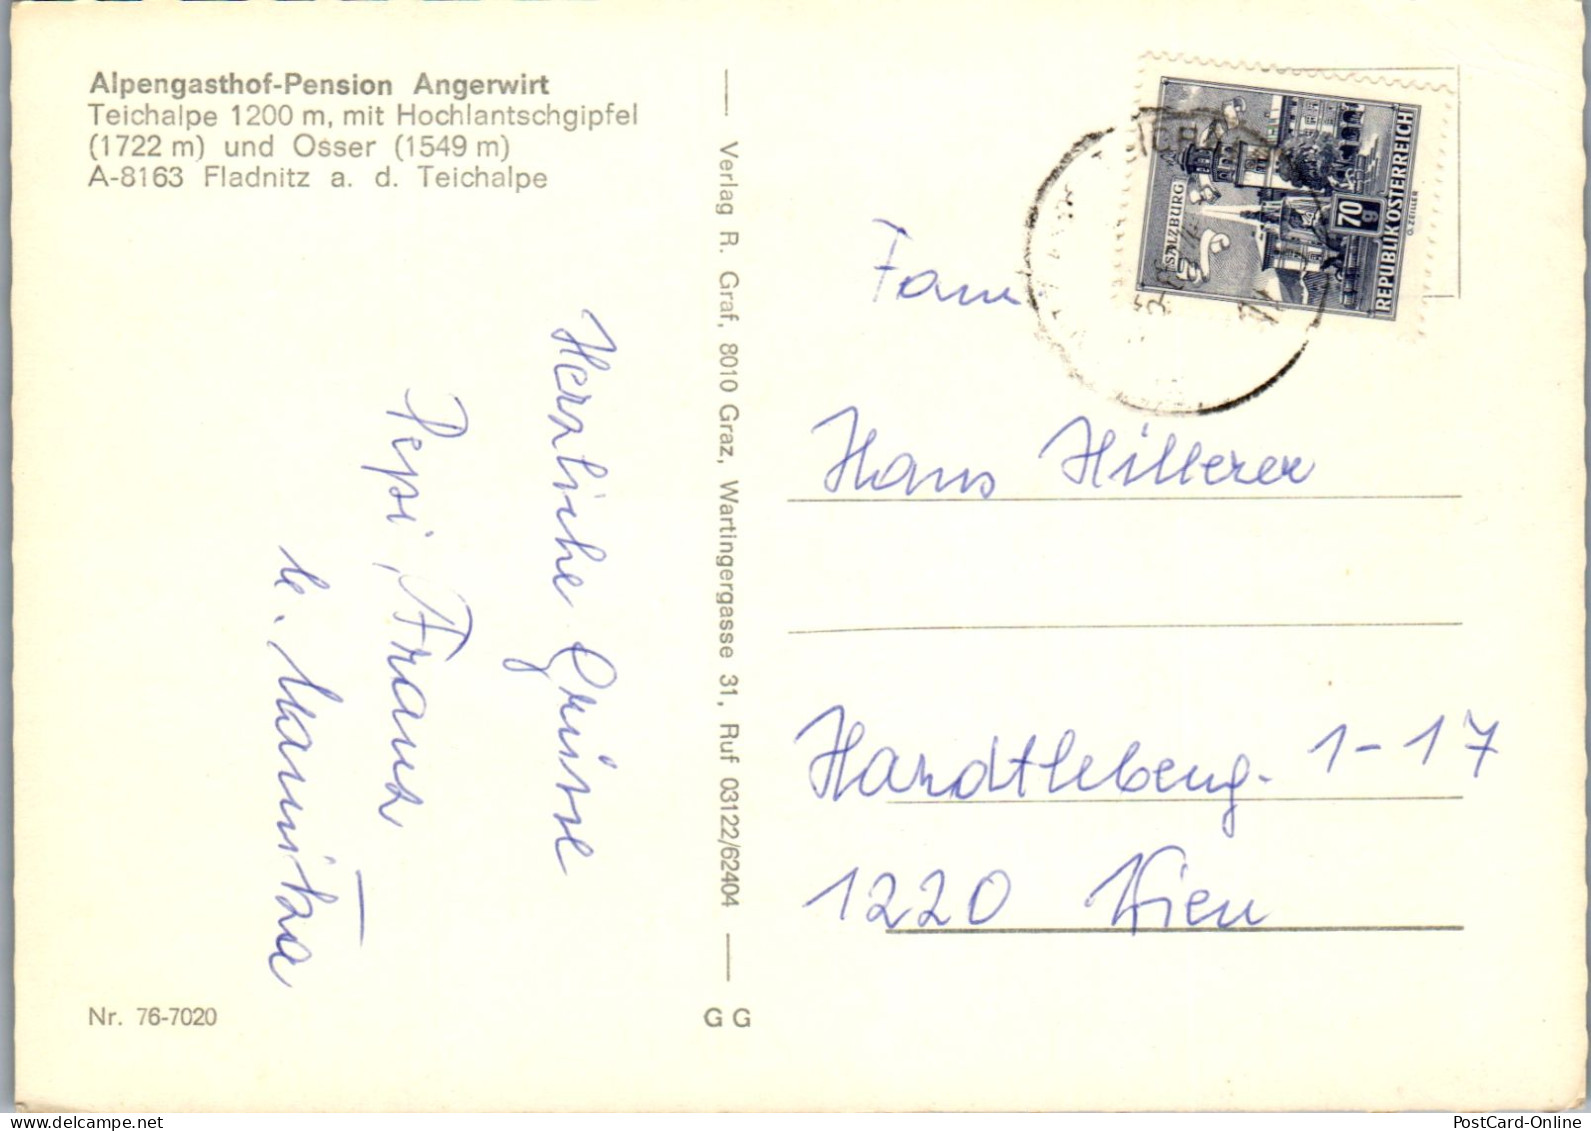 Alpengasthof-Pension Angerwirt
Teichalpe 1200 m, mit Hochlantschgipfel
(1722 m) und Osser (1549 m)
A-8163 Fladnitz a. d. Teichalpe
Herzliche Grüsse
Pepi, Franz
u. Mamitza
Nr. 76-7020
Verlag R. Graf, 8010 Graz, Wartingergasse 31, Ruf 03122/62404
G G
SALZBURG
70 g
REPUBLIK ÖSTERREICH
G. ZEILLER
Fam
Hans Hillerer
Hardtlebeng. 1-17
1220 Wien
PostCard-Online